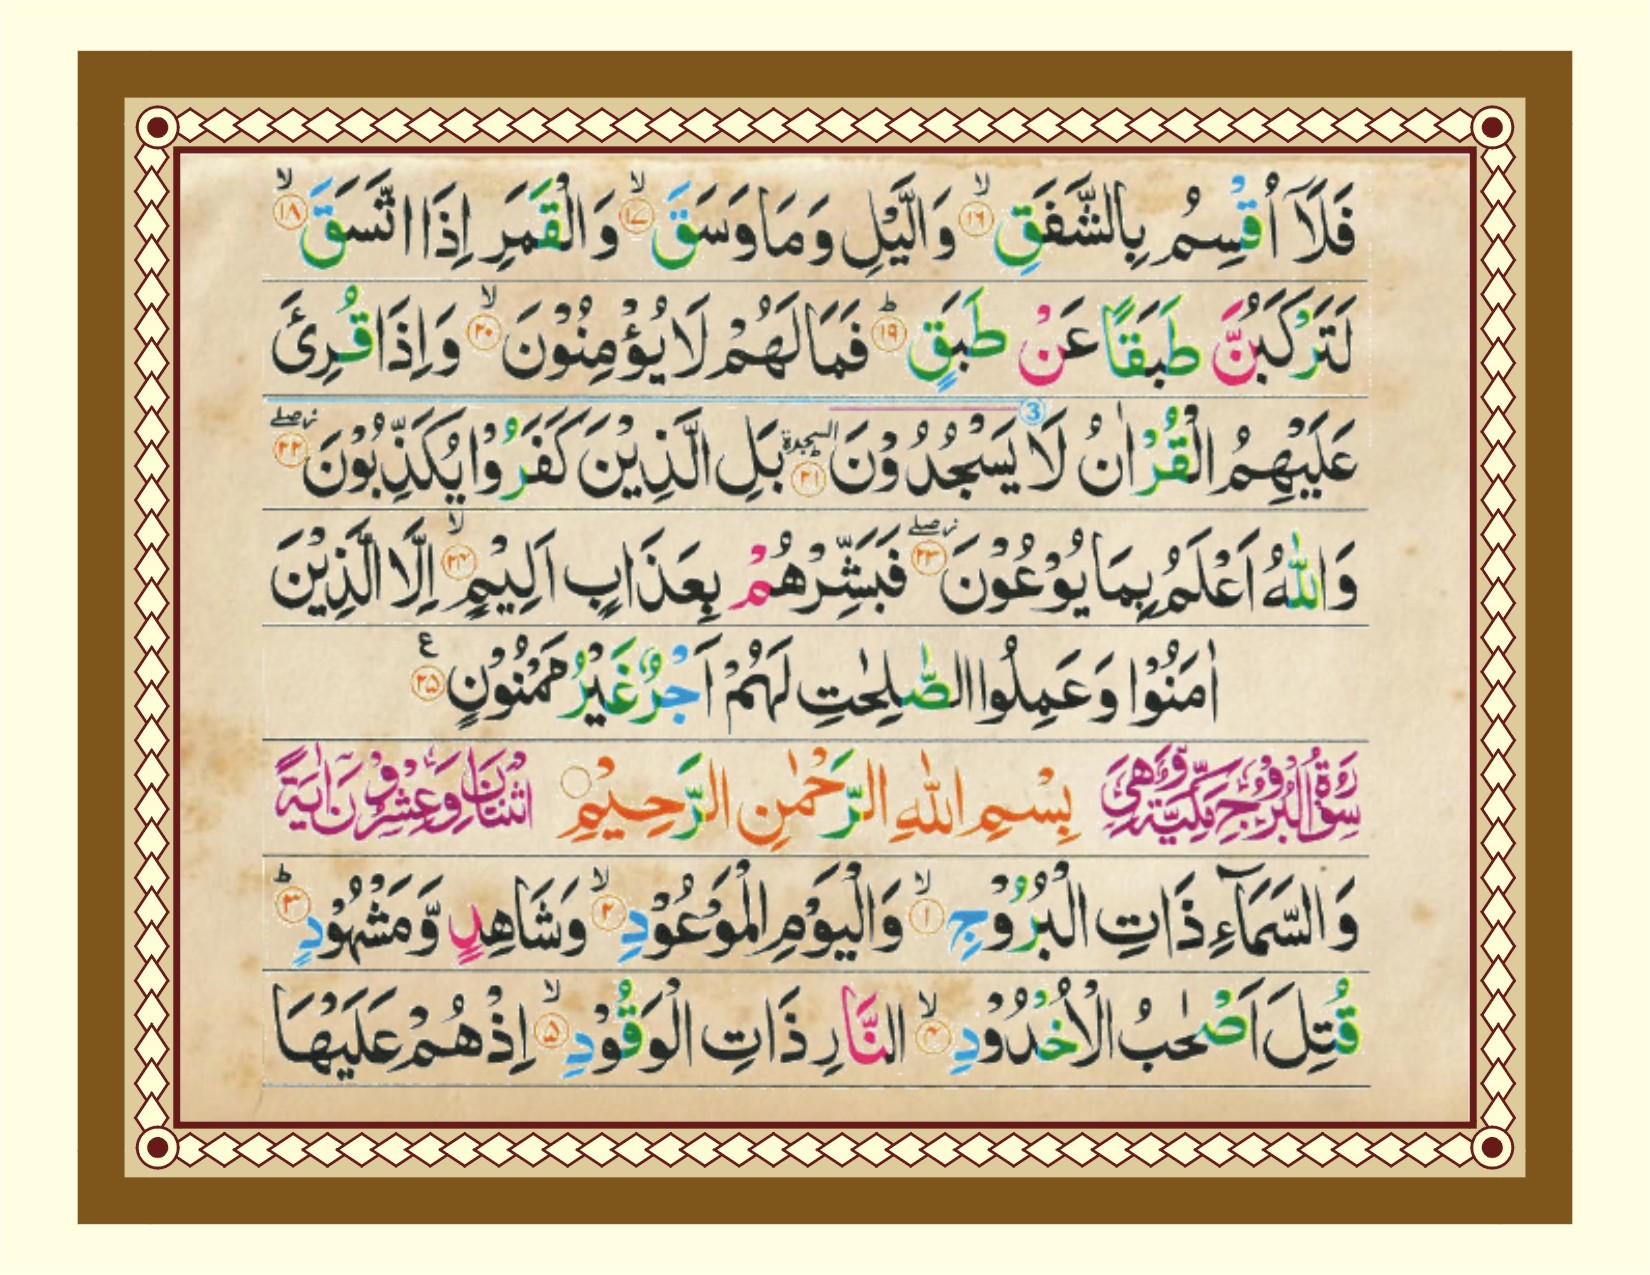 فَلَآ اُقْسِمُ بِالشَّفَقِ ۙ﴿۱۶﴾ وَالَّيْلِ وَمَا وَسَقَ ۙ﴿۱۷﴾ وَالْقَمَرِ اِذَا اتَّسَقَ ۙ﴿۱۸﴾
لَتَرْكَبُنَّ طَبَقًا عَنْ طَبَقٍ ؕ﴿۱۹﴾ فَمَا لَهُمْ لَا يُؤْمِنُوْنَ ۙ﴿۲۰﴾ وَاِذَا قُرِئَ
3
عَلَيْهِمُ الْقُرْاٰنُ لَا يَسْجُدُوْنَ السجدة ؕ﴿۲۱﴾ بَلِ الَّذِيْنَ كَفَرُوْا يُكَذِّبُوْنَ ۖز﴿۲۲﴾
وَاللّٰهُ اَعْلَمُ بِمَا يُوْعُوْنَ ۖز﴿۲۳﴾ فَبَشِّرْهُمْ بِعَذَابٍ اَلِيْمٍ ۙ﴿۲۴﴾ اِلَّا الَّذِيْنَ
اٰمَنُوْا وَعَمِلُوا الصّٰلِحٰتِ لَهُمْ اَجْرٌ غَيْرُ مَمْنُوْنٍ ع﴿۲۵﴾
سُوْرَةُ الْبُرُوْجِ مَكِّيَّةٌ وَّهِيَ بِسْمِ اللّٰهِ الرَّحْمٰنِ الرَّحِيْمِ اثْنَتَانِ وَعِشْرُوْنَ اٰيَةً
وَالسَّمَآءِ ذَاتِ الْبُرُوْجِ ۙ﴿۱﴾ وَالْيَوْمِ الْمَوْعُوْدِ ۙ﴿۲﴾ وَشَاهِدٍ وَّمَشْهُوْدٍ ؕ﴿۳﴾
قُتِلَ اَصْحٰبُ الْاُخْدُوْدِ ۙ﴿۴﴾ النَّارِ ذَاتِ الْوَقُوْدِ ۙ﴿۵﴾ اِذْ هُمْ عَلَيْهَا